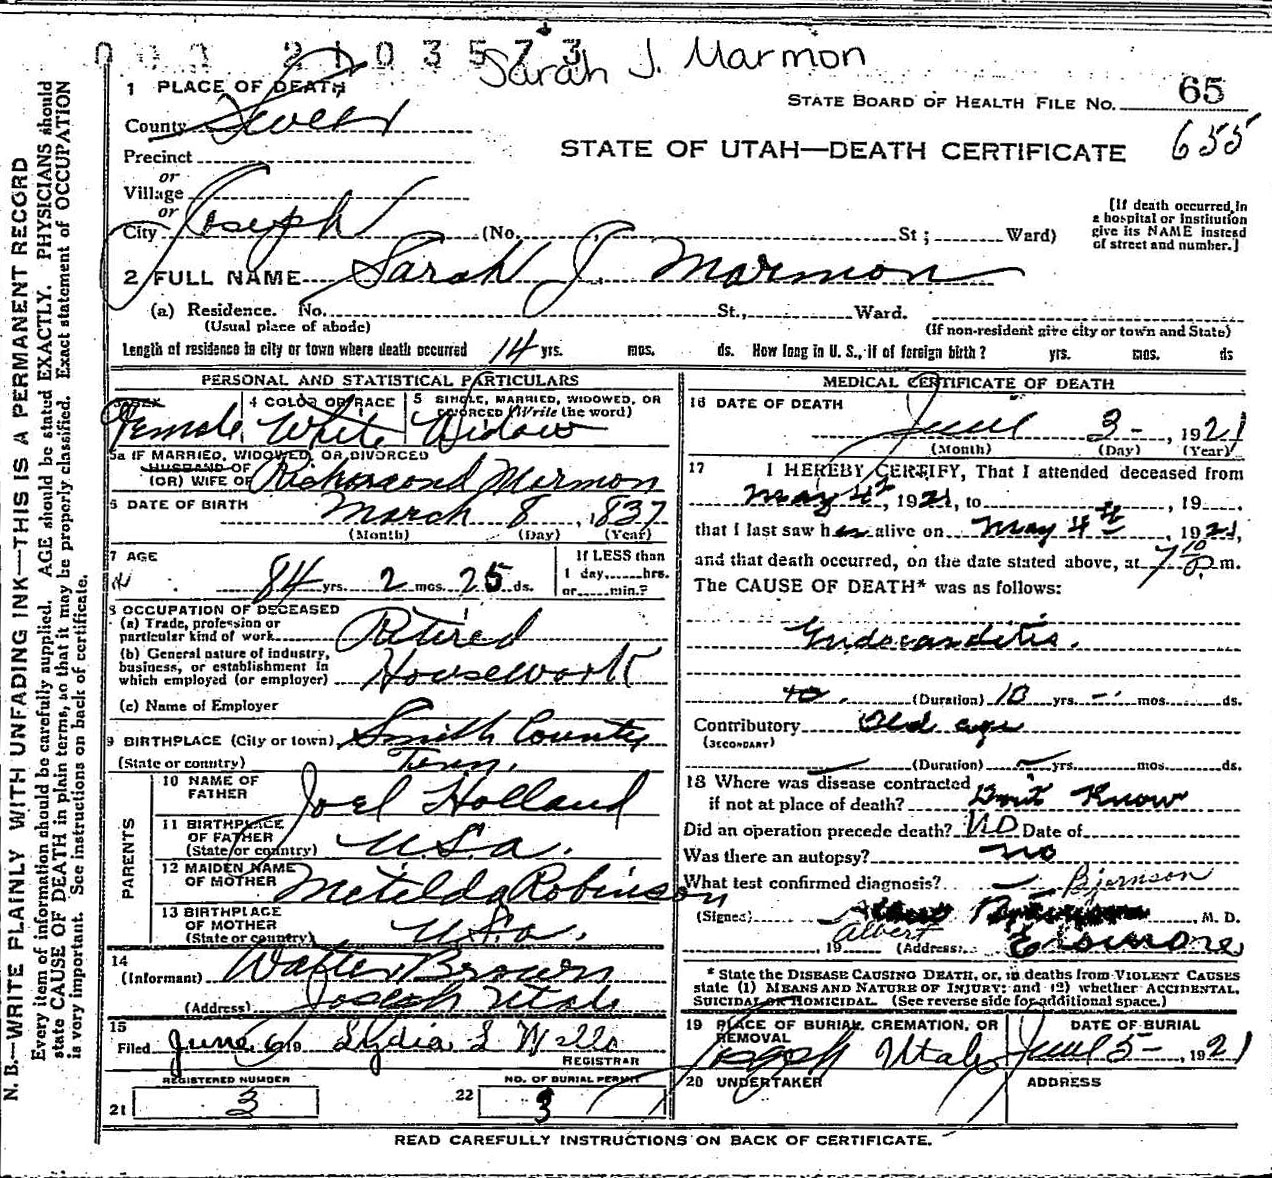 0 0 3 2 1 0 3 5 7 3
Sarah J. Marmon
1 PLACE OF DEATH
STATE BOARD OF HEALTH FILE NO. 65
County Sevier
STATE OF UTAH—DEATH CERTIFICATE 655
Precinct
or
Village
or
City Joseph (No. St; Ward)
[If death occurred in
a hospital or institution
give its NAME instead
of street and number.]
2 FULL NAME Sarah J. Marmon
(a) Residence. No. St., Ward.
(Usual place of abode) (If non-resident give city or town and State)
Length of residence in city or town where death occurred 14 yrs. mos. ds. How long in U. S., if of foreign birth? yrs. mos. ds
PERSONAL AND STATISTICAL PARTICULARS
3 SEX Female
4 COLOR OR RACE White
5 SINGLE, MARRIED, WIDOWED, OR
DIVORCED (Write the word)
Widow
5a IF MARRIED, WIDOWED, OR DIVORCED
HUSBAND OF
(OR) WIFE OF Richmond Marmon
6 DATE OF BIRTH
March 8, 1837
(Month) (Day) (Year)
7 AGE
84 yrs. 2 mos. 25 ds.
If LESS than
1 day,......hrs.
or......min.?
8 OCCUPATION OF DECEASED
(a) Trade, profession or
particular kind of work Retired
(b) General nature of industry,
business, or establishment in
which employed (or employer) Housework
(c) Name of Employer
9 BIRTHPLACE (City or town) Smith County
(State or country) Tenn.
PARENTS
10 NAME OF
FATHER Joel Holland
11 BIRTHPLACE
OF FATHER
(State or country) U.S.a.
12 MAIDEN NAME
OF MOTHER Metilda Robinson
13 BIRTHPLACE
OF MOTHER
(State or country) U.S.a.
14
(Informant) Walter Brown
(Address) Joseph Utah
15
Filed June 6 19 Lydia S Wells
REGISTRAR
REGISTERED NUMBER
21 3
NO. OF BURIAL PERMIT
22 3
MEDICAL CERTIFICATE OF DEATH
16 DATE OF DEATH
June 3-, 1921
(Month) (Day) (Year)
17 I HEREBY CERTIFY, That I attended deceased from
May 4th, 1921, to , 19
that I last saw her alive on May 4th, 1921,
and that death occurred, on the date stated above, at 7 10 P. m.
The CAUSE OF DEATH* was as follows:
Endocarditis.
10. (Duration) 10 yrs. - mos. ds.
Contributory Old age
(SECONDARY)
(Duration) yrs. mos. ds.
18 Where was disease contracted
if not at place of death? Don't Know
Did an operation precede death? No Date of
Was there an autopsy? no
What test confirmed diagnosis? — Bjornson
(Signed) , M. D.
Albert
, 19 (Address) Elsinore
* State the DISEASE CAUSING DEATH, or, in deaths from VIOLENT CAUSES
state (1) MEANS AND NATURE OF INJURY; and (2) whether ACCIDENTAL,
SUICIDAL OR HOMICIDAL. (See reverse side for additional space.)
19 PLACE OF BURIAL, CREMATION, OR
REMOVAL
Joseph Utah
DATE OF BURIAL
June 5-, 1921
20 UNDERTAKER
ADDRESS
READ CAREFULLY INSTRUCTIONS ON BACK OF CERTIFICATE.
N. B.—WRITE PLAINLY WITH UNFADING INK—THIS IS A PERMANENT RECORD
Every item of information should be carefully supplied. AGE should be stated EXACTLY. PHYSICIANS should
state CAUSE OF DEATH in plain terms, so that it may be properly classified. Exact statement of OCCUPATION
is very important. See instructions on back of certificate.